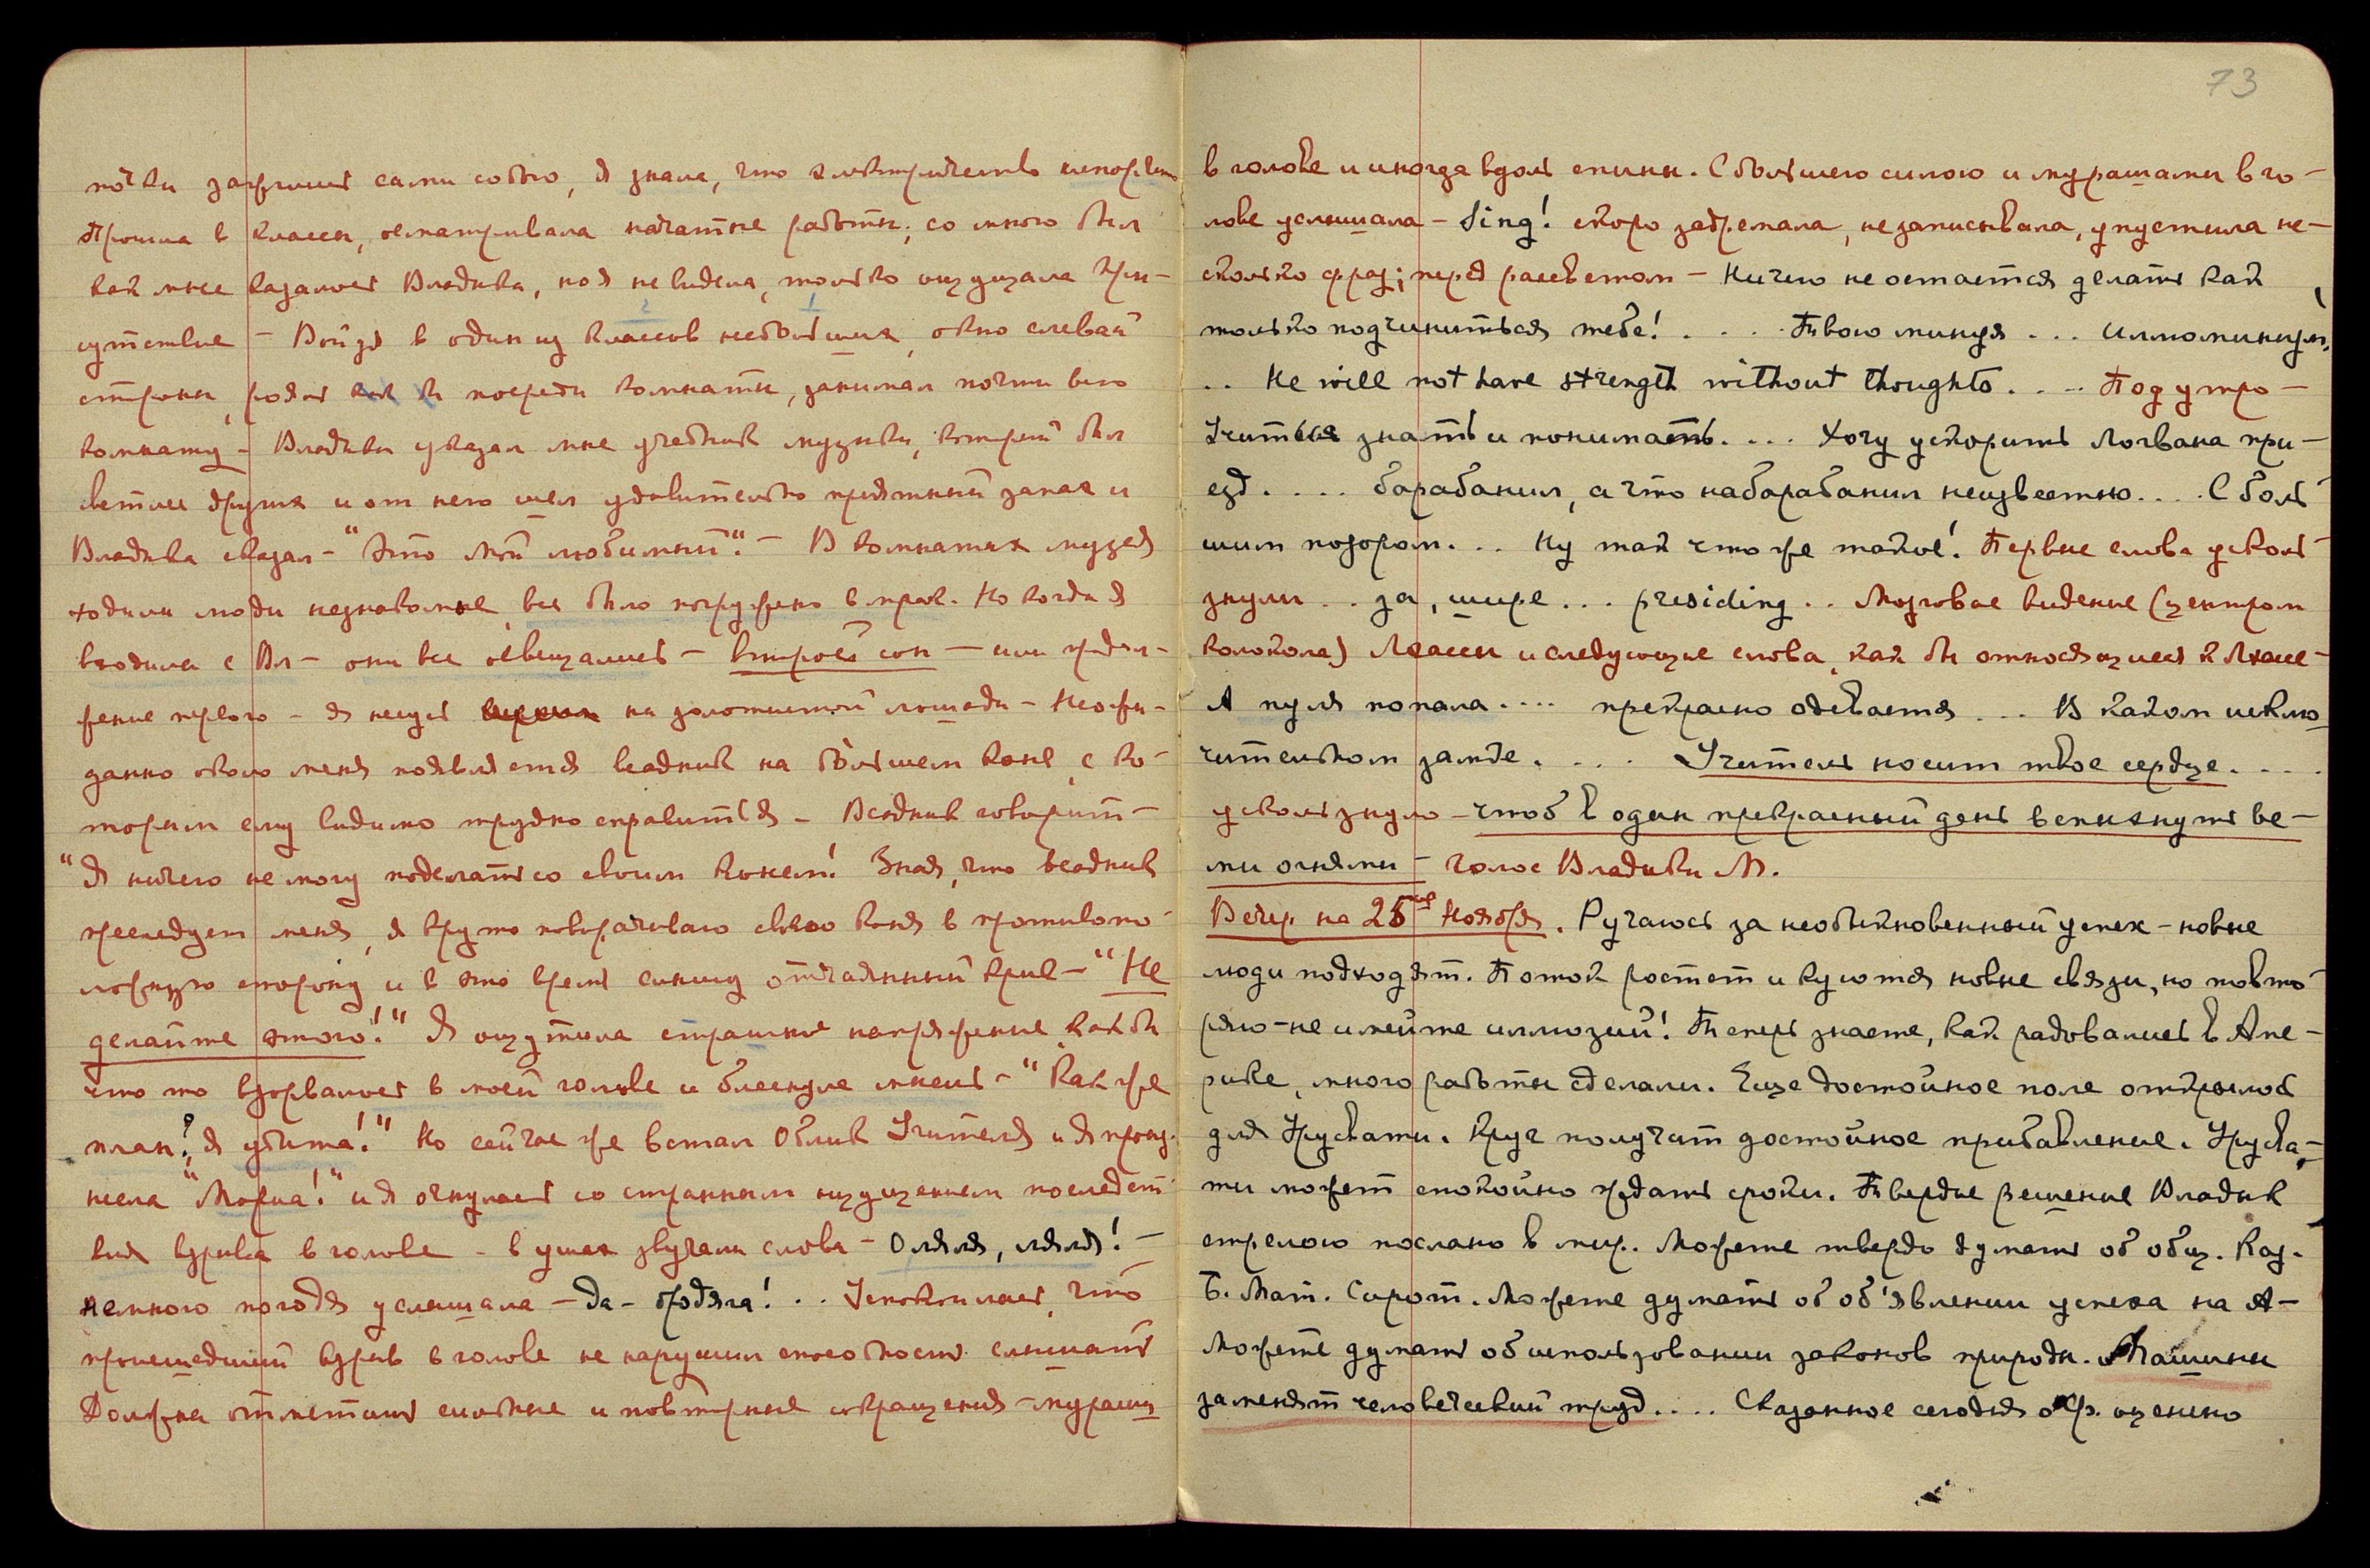 почки зажглись сами собою, я знала, что электричество испорчено
Прошла в классы, осматривала начатые работы, со мною был
как мне казалось Владыка, но я не видела, только ощущала при-
сутствие – Войдя в один из классов небольших, окно с левой
стороны, рояль посреди комнаты, занимал почти всю
комнату – Владыка указал мне учебник музыки, который был
светлее других и от него шел удивительно приятный запах и
Владыка сказал – "Это мой любимый". – В комнатах музея
ходили люди незнакомые, все было погружено в мрак. Но когда я
входила с Вл – они все освещались – второй сон – или
жение первого – я несусь на золотистой лошади – Неожи-
данно около меня появляется всадник на большем коне, с ко-
торым ему видимо трудно справиться – Всадник говорит –
"Я ничего не могу поделать со своим конем! Зная, что всадник
преследует меня, я круто поворачиваю своего коня в противопо-
ложную сторону и в это время слышу отчаянный крик – "Не
делайте этого!" Я ощутила страшное напряжение, как бы
что то взорвалось в моей голове и блеснула мысль – "Как же
план? я убита!" Но сейчас же встал Облик Учителя и я произ-
несла "Мориа!" и я очнулась со странным ощущением последст-
вия взрыва в голове – в ушах звучали слова – Оляля, ляля! –
немного погодя услышала – да – бродяга! . . Успокоилась, что
происшедший взрыв в голове не нарушил способность слышать
Должна отметить сильные и повторные сокращения – мурашки
73
в голове и иногда вдоль спины. С большею силою и мурашами в го-
лове услышала – Sing! скоро задремала, не записывала, упустила не-
сколько фраз; перед рассветом – Ничего не остается делать как
только подчиниться тебе! . . . . Твою минуя . . .
. . He will not have strength without thoughts. . . . Под утро –
Учиться знать и понимать. . . . Хочу ускорить Логвана при-
езд. . . . барабанил, а что набарабанил неизвестно. . . . С боль-
шим позором. . . Ну так что же такое! Первые слова усколь-
знули . . да, шире . . . presiding . . Мозговое видение (центром
колокола) Лхассы и следующие слова, как бы относящиеся к Лхассе –
А пуля попала . . . . прекрасно одевается . . . В каком исклю-
чительном задоре. . . . Учитель носит твое сердце. . . .
ускользнуло – чтоб в один прекрасный день вспыхнуть все-
ми огнями – голос Владыки М.
Вечер на 25ое Ноября. Ручаюсь за необыкновенный успех – новые
люди подходят. Поток ростет и куются новые связи, но повто-
ряю – не имейте иллюзий! Теперь знаете, как радовались в Аме-
рике, много работы сделали. Еще достойное поле открылось
для Урусвати. Круг получит достойное прибавление. Урусва-
ти может спокойно ждать сроки. Твердое решение Владык
стрелою послано в мир. Можете твердо думать об общ. Каз.
Б. Мат. Сирот. Можете думать об об'явлении успеха на А –
Можете думать об использовании законов природы. Машины
заменят человеческий труд. . . . Сказанное сегодня о оценено